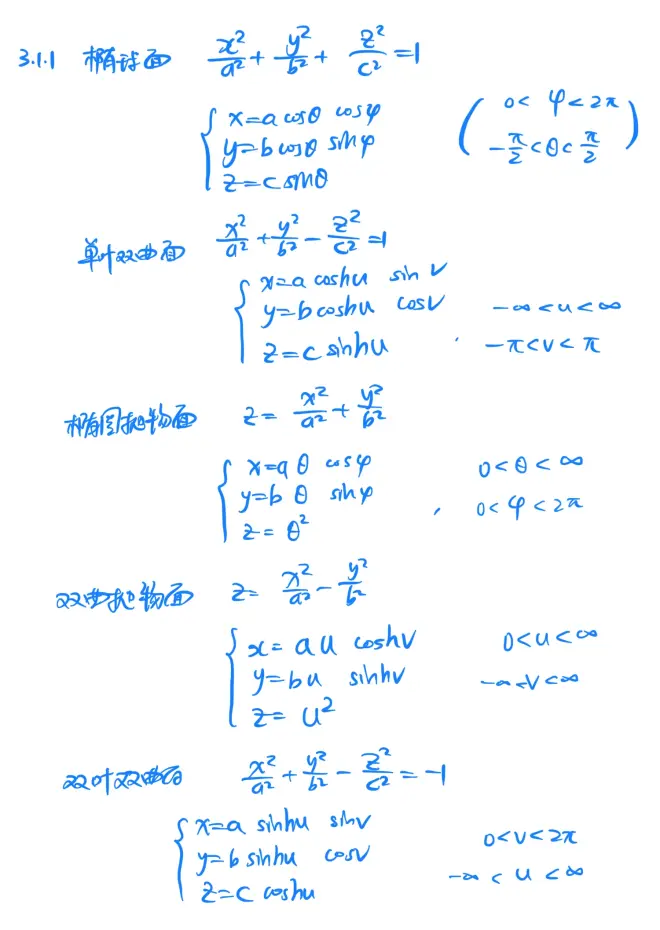 3.1.1 椭球面 x²/a² + y²/b² + z²/c² = 1
{ x = a cosθ cosφ ( 0 < φ < 2π
y = b cosθ sinφ -π/2 < θ < π/2 )
z = c sinθ
单叶双曲面 x²/a² + y²/b² - z²/c² = 1
{ x = a coshu sin v
y = b coshu cosv -∞ < u < ∞
z = c sinhu , -π < v < π
椭圆抛物面 z = x²/a² + y²/b²
{ x = a θ cosφ 0 < θ < ∞
y = b θ sinφ , 0 < φ < 2π
z = θ²
双曲抛物面 z = x²/a² - y²/b²
{ x = a u coshv 0 < u < ∞
y = b u sinhv -∞ < v < ∞
z = u²
双叶双曲面 x²/a² + y²/b² - z²/c² = -1
{ x = a sinhu sinv 0 < v < 2π
y = b sinhu cosv -∞ < u < ∞
z = c coshu